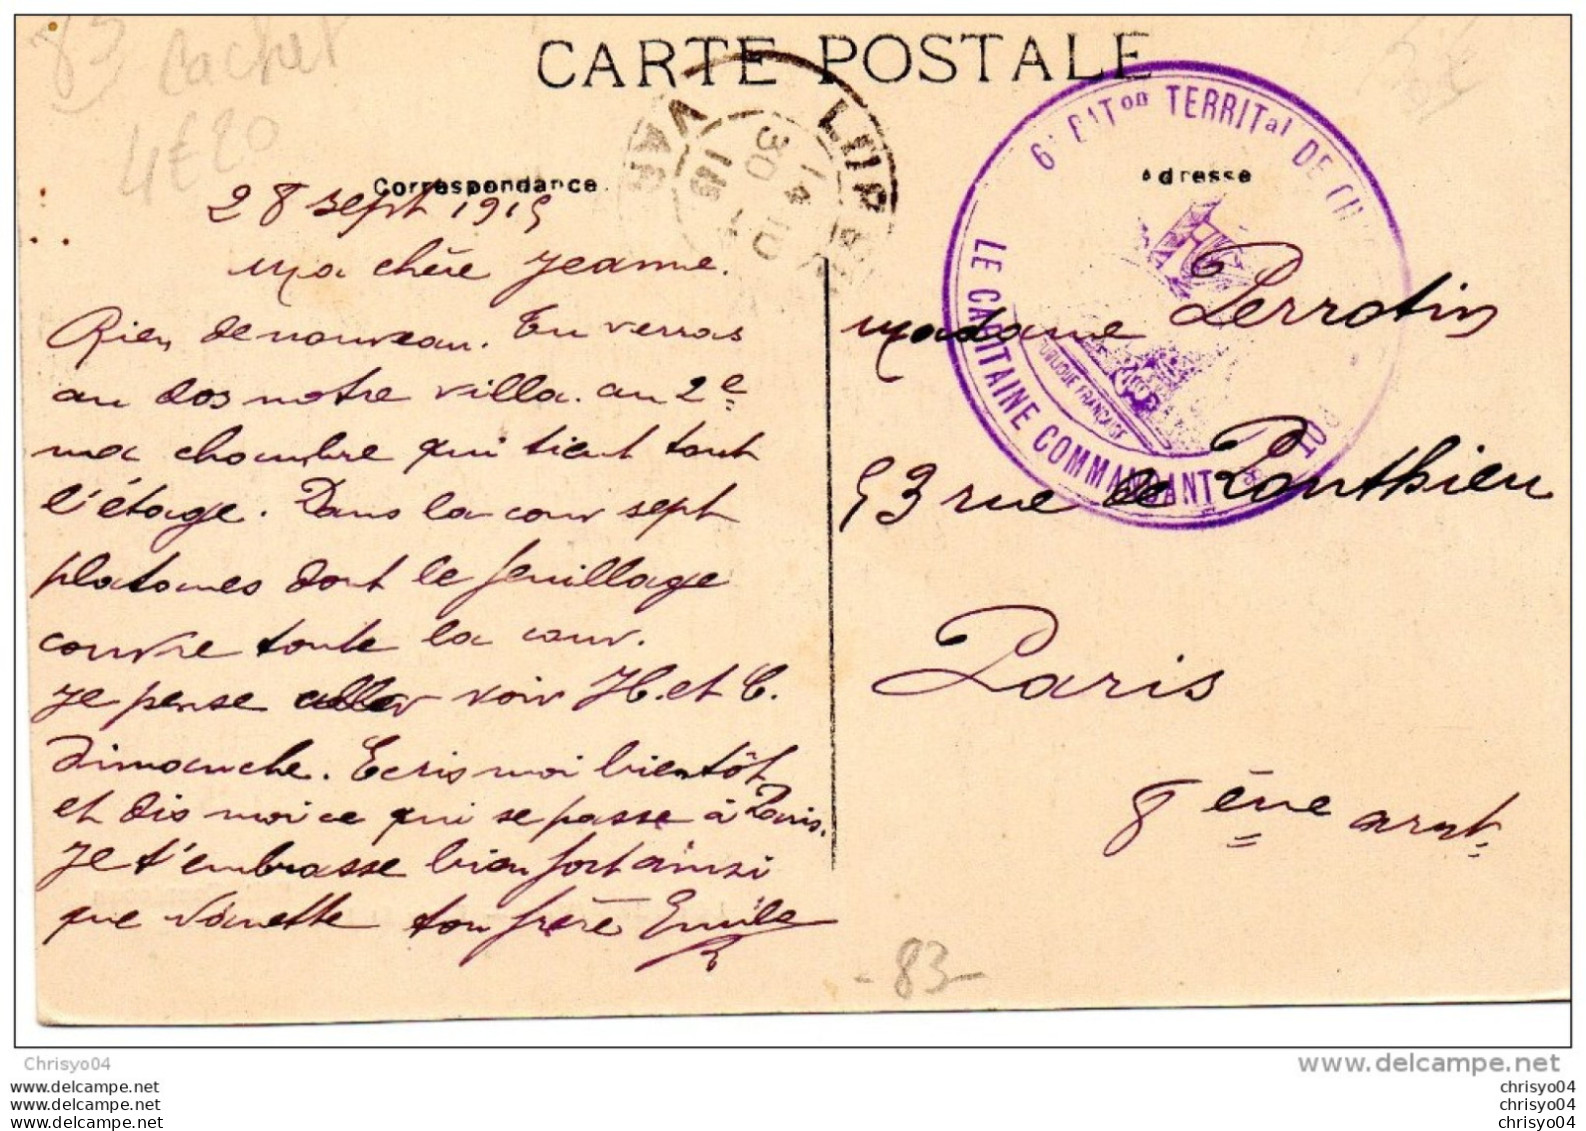 CARTE POSTALE
83 cachet
4€20
Correspondance.
Adresse
VAR
30
6e BATon TERRITal DE CH
LE CAPITAINE COMMANDANT
RÉPUBLIQUE FRANÇAISE
28 sept 1915
Ma chère Jeanne.
Rien de nouveau. Tu verras
au dos notre villa. au 2e
ma chambre qui tient tout
l'étage. Dans la cour sept
platanes dont le feuillage
couvre toute la cour.
Je pense aller voir H. et C.
Dimanche. Ecris moi bientôt
et dis moi ce qui se passe à Paris.
Je t'embrasse bien fort ainsi
que Vonette ton frère Emile
Madame Perrotin
53 rue de Ponthieu
Paris
8ème arrt
- 83 -
Chrisyo04
www.delcampe.net
chrisyo04
chrisyo04
chrisyo04
chrisyo04
chrisyo04
chrisyo04